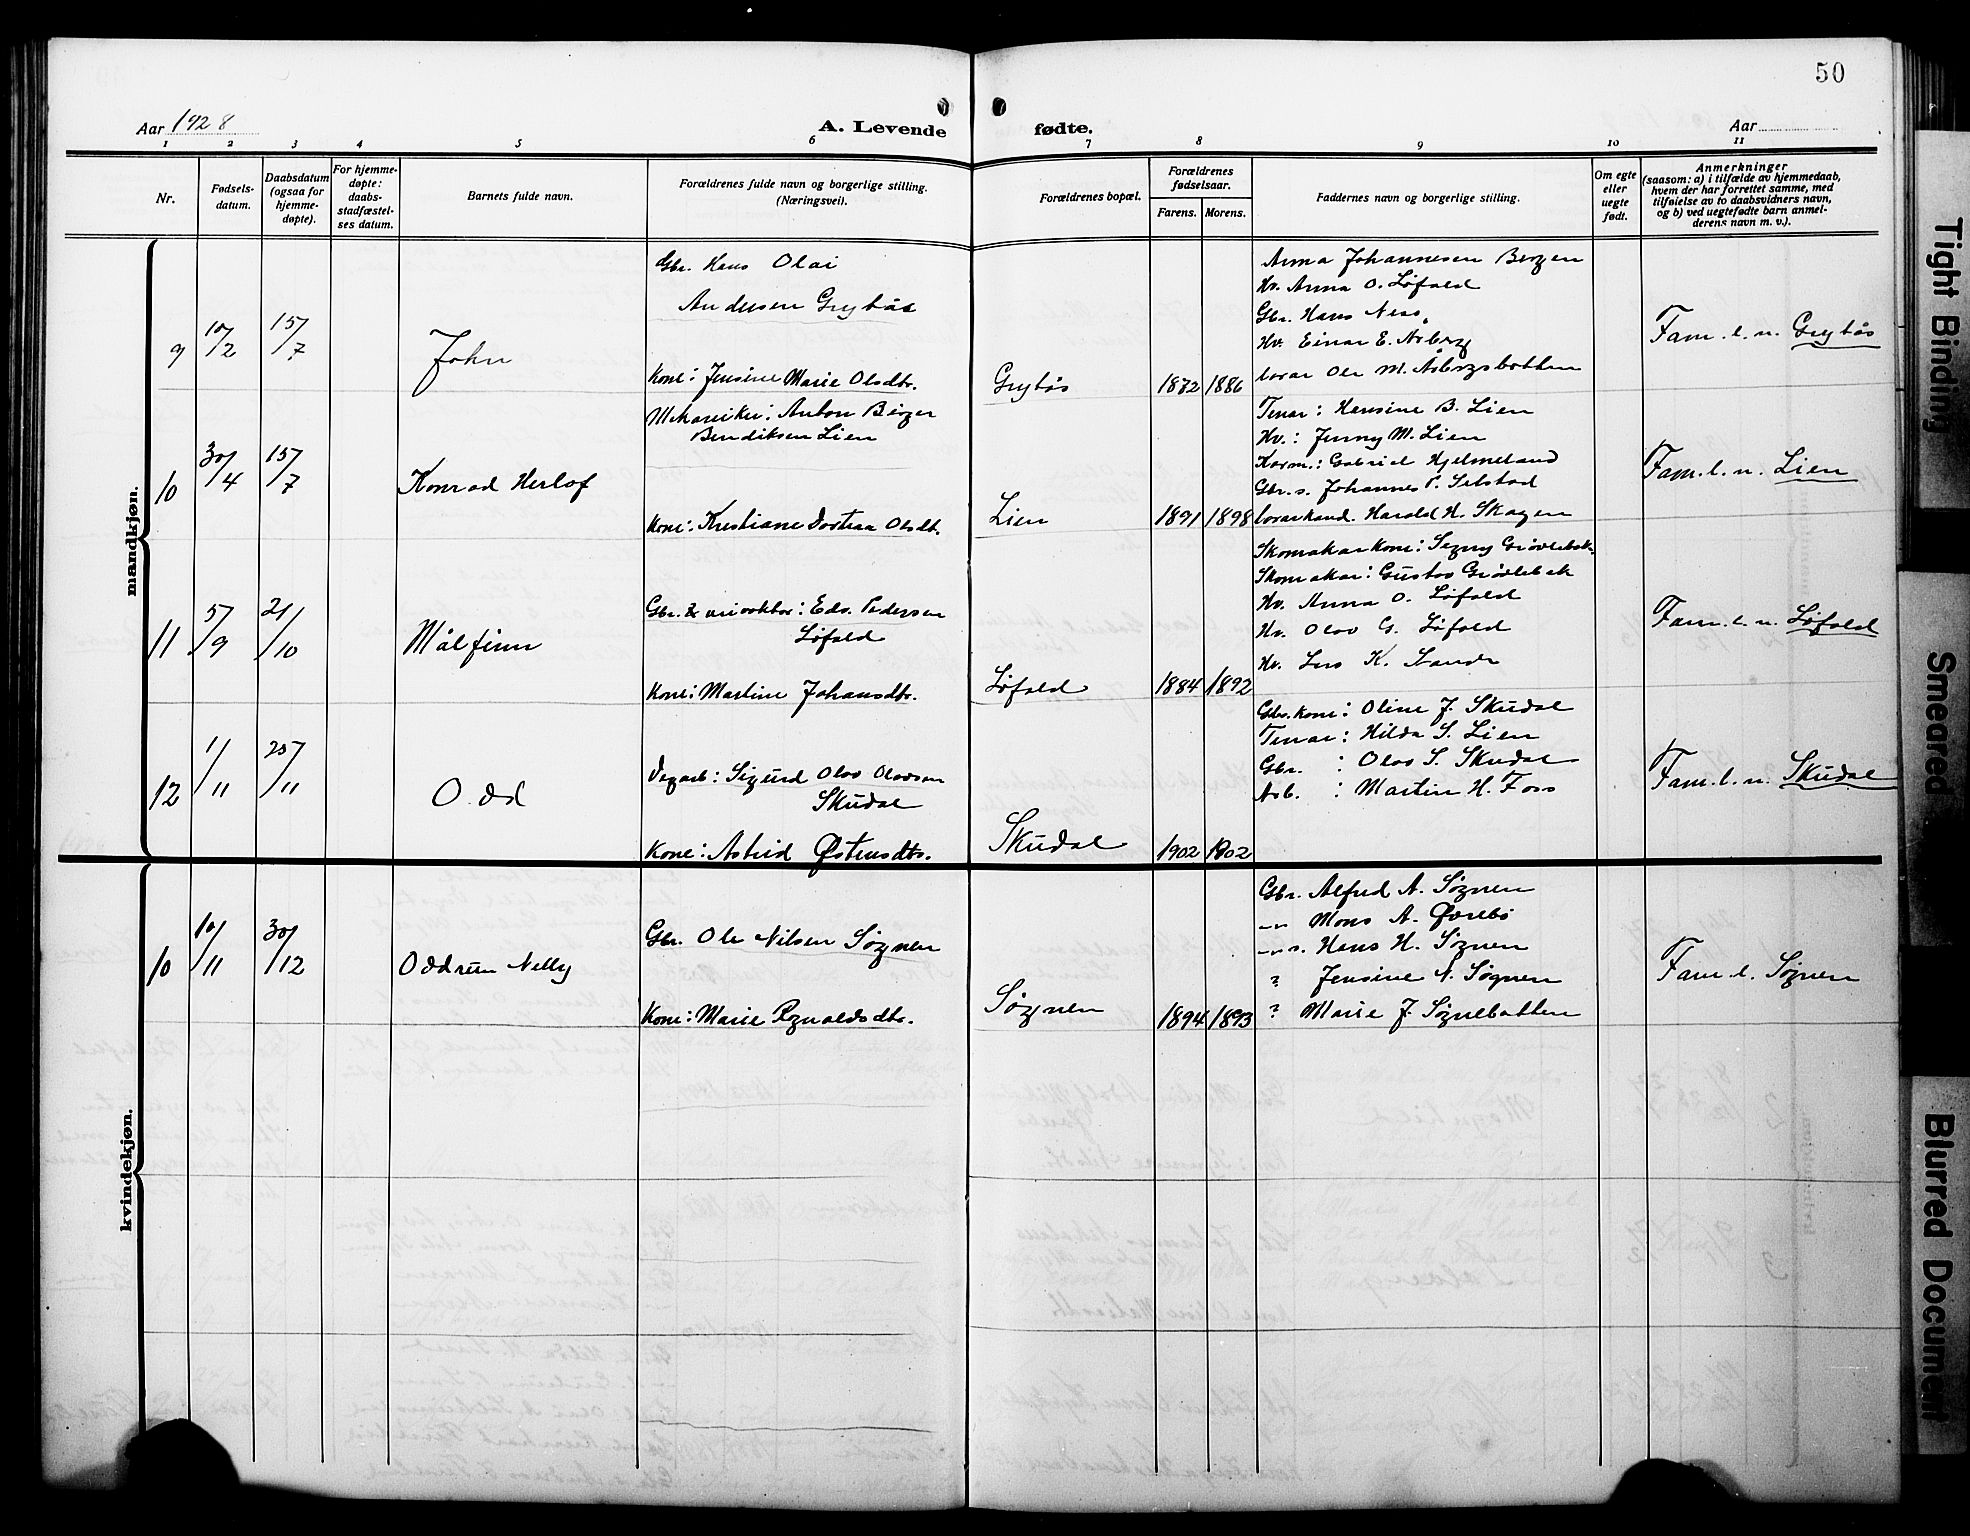 50
Aar 1928
A. Levende
fødte.
Aar
1 2 3 4 5 6 7 8 9 10 11
Nr.
Fødsels-
datum.
Daabsdatum
(ogsaa for
hjemme-
døpte).
For hjemme-
døpte:
daabs-
stadfæstel-
ses datum.
Barnets fulde navn.
Forældrenes fulde navn og borgerlige stilling.
(Næringsvei).
Forældrenes bopæl.
Forældrenes
fødselsaar.
Farens. Morens.
Faddernes navn og borgerlige stilling.
Om egte
eller
uegte
født.
Anmerkninger
(saasom: a) i tilfælde av hjemmedaab,
hvem der har forrettet samme, med
tilføielse av to daabsvidners navn,
og b) ved uegtefødte barn anmel-
derens navn m. v.).
mandkjøn.
9
10/2
15/7
John
Gbr. Hans Olai
Andersen Grytås
Kone: Jensine Marie Olsdtr.
Grytås
1872 1886
Anna Johannesen Bergen
Hv. Anna O. Løfald
Gbr. Hans Ness
Hv. Einar E. Åsberg
Ole M. Åsbergsbotten
Fam. l. n. Grytås
10
30/4
15/7
Konrad Herlof
Mekaniker: Anton Birger
Bendiksen Lien
Kone: Kristiane Dortea Olsdtr.
Lien
1891 1898
Tenar: Hansine B. Lien
Hv.: Jenny M. Lien
Korm.: Gabriel Hjelmeland
Gbr. s. Johannes P. Selstad
Harald H. Skagen
Fam. l. n. Lien
11
5/9
21/10
Målfinn
Gbr. & Edv. Pedersen
Løfald
Kone: Martine Johansdtr.
Løfald
1884 1892
Skomakarkone: Signy Grøvlebak
Skomakar: Gustav Grøvlebak
Hv. Anna O. Løfald
Hv. Olav G. Løfald
Hv. Lars K. Sande
Fam. l. n. Løfald
12
1/11
25/11
Odd
Vegarb: Sigurd Olav Olavsen
Skudal
Kone: Astrid Østensdtr.
Skudal
1902 1902
Gbr. kone: Oline J. Skudal
Tenar: Hilda S. Lien
Gbr. : Olav S. Skudal
Arb. : Martin H. Foss
Fam. l. n. Skudal
kvindekjøn.
10
10/11
30/12
Oddrun Nelly
Gbr. Ole Nilsen Søgnen
Kone: Marie Rgnaldsdtr.
Søgnen
1894 1893
Gbr. Alfred A. Søgnen
-"- Mons A. Øvrebø
-"- s. Hans H. Søgnen
? Jensine N. Søgnen
? Marie J. Søgnebotten
Fam. l. Søgnen
Tight Binding
Smeared
Blurred Document